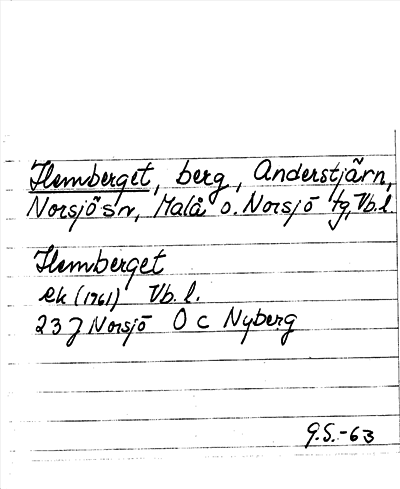 Hemberget, berg, Anderstjärn,
Norsjö sn, Malå o. Norsjö tg, Vb.l.
Hemberget
ek (1961) Vb. l.
23 J Norsjö O c Nyberg
G.S.-63